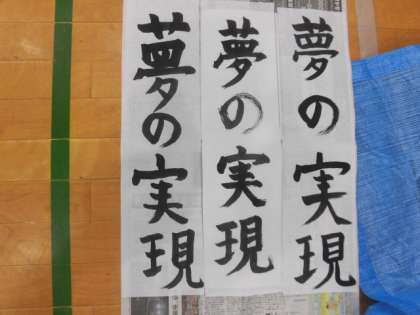 夢の実現
夢の実現
夢の実現